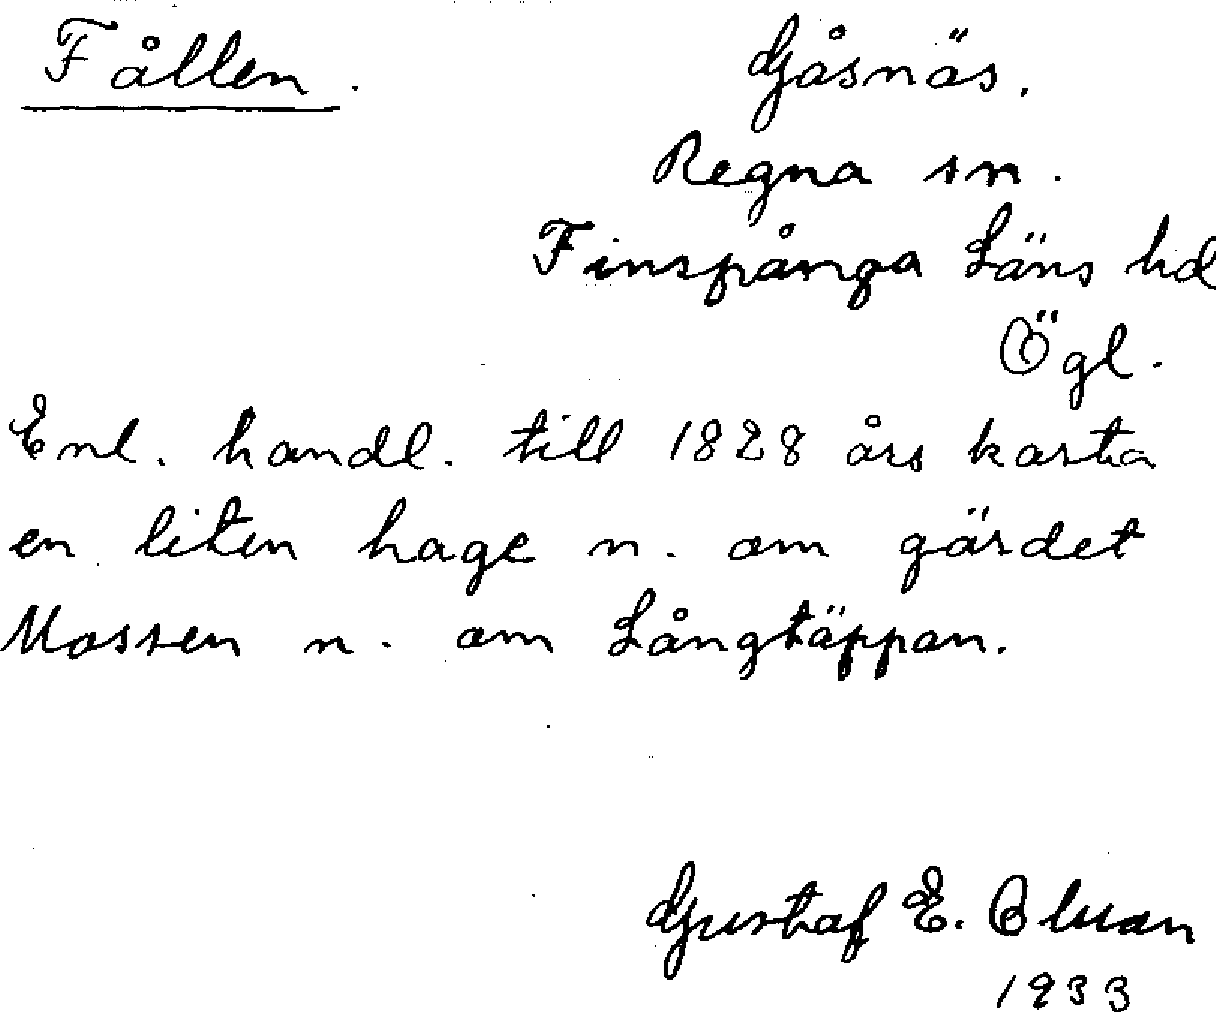 Fållen. Gåsnäs.
Regna sn.
Finspånga Läns hd
Ögl.
Enl. handl. till 1828 års karta
en liten hage n. om gärdet
Mossen n. om Långtäppan.
Gustaf E.
1933